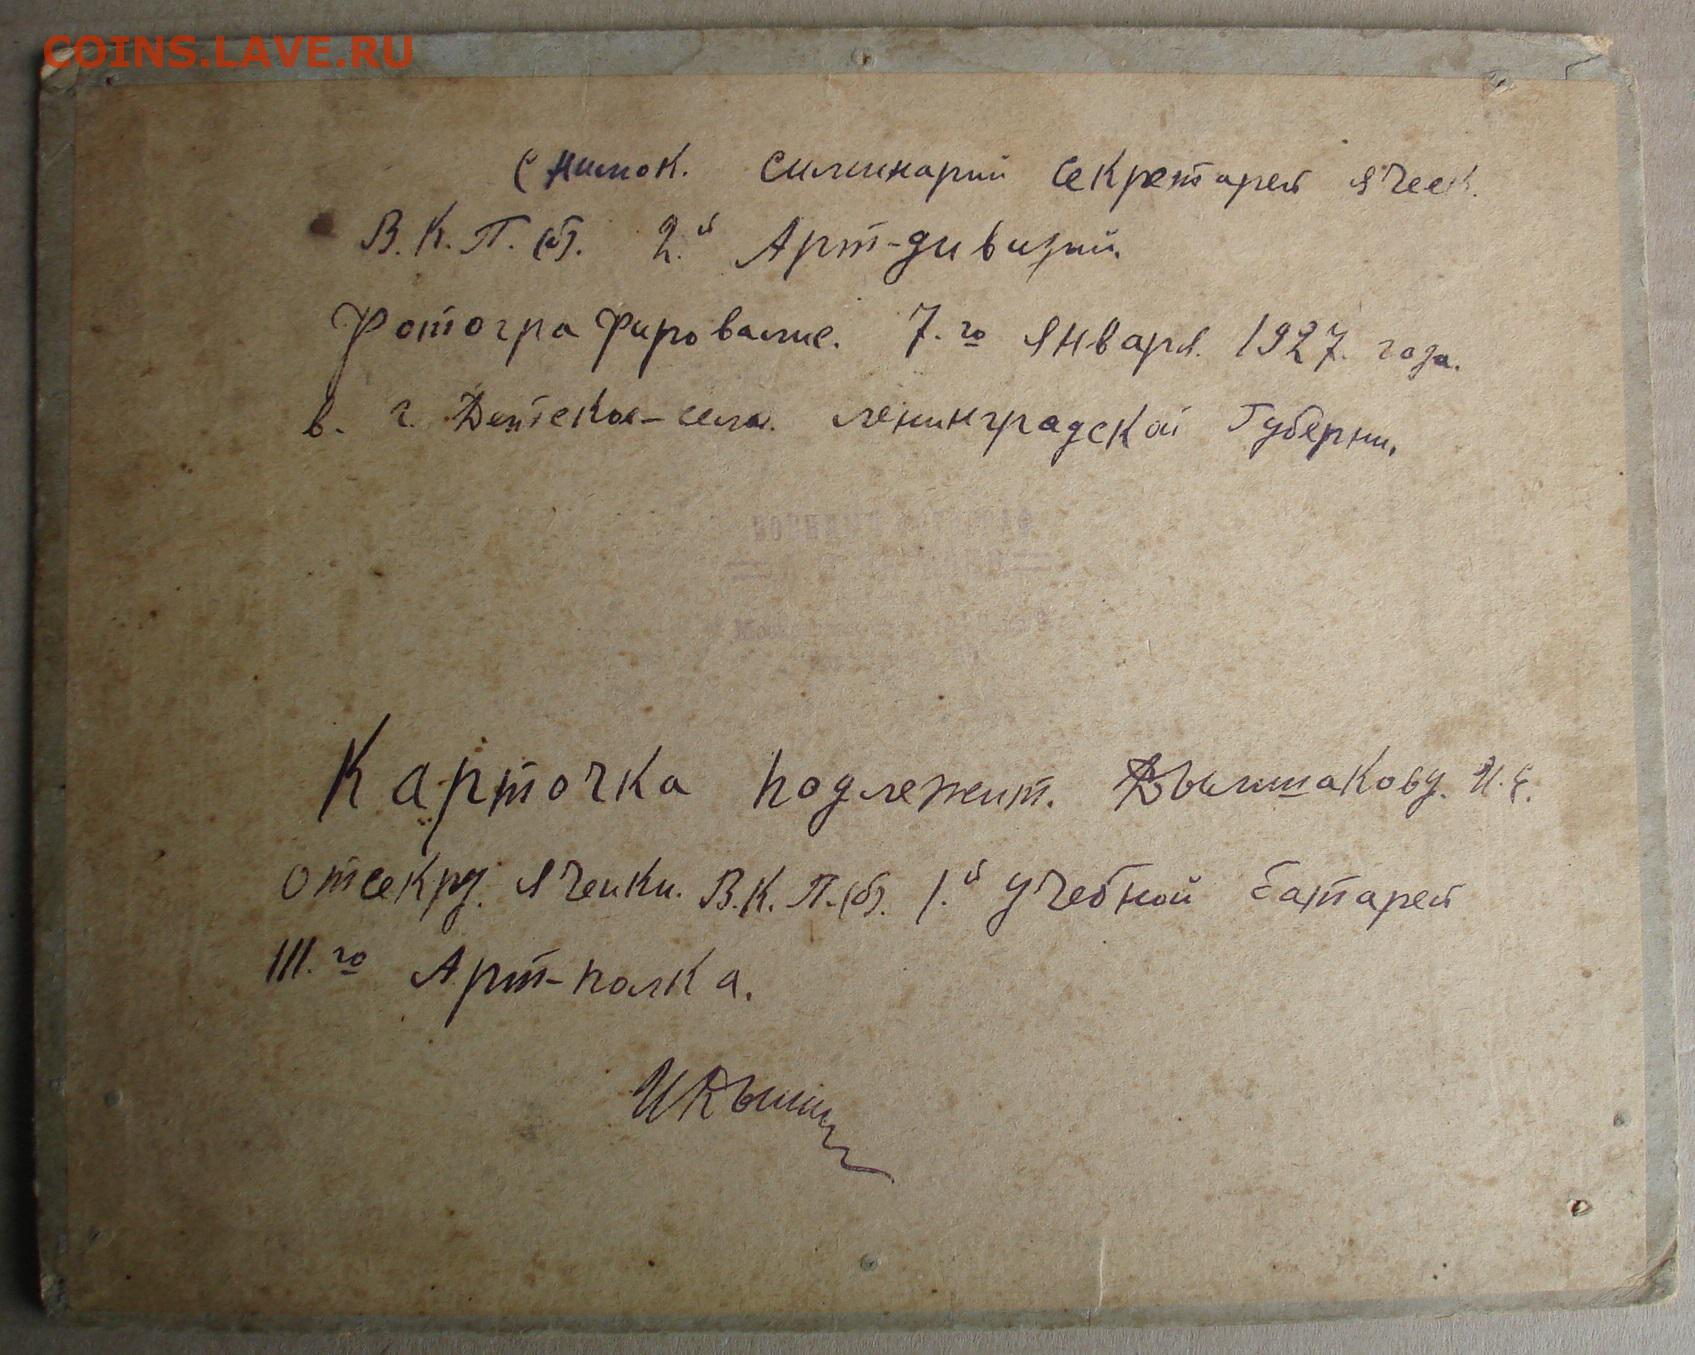 COINS.LAVE.RU
Снимок. симинарий секретарей ячеек.
В.К.П.(б). 2.й Арт-дивизий.
Фотографирование. 7.го января. 1927. года.
в. г. Детское-село. ленинградской Губерни.
Карточка подлежит. И.Е.
отсекру. ячейки. В.К.П.(б). 1.й учебной батареи
III.го Арт-полка.